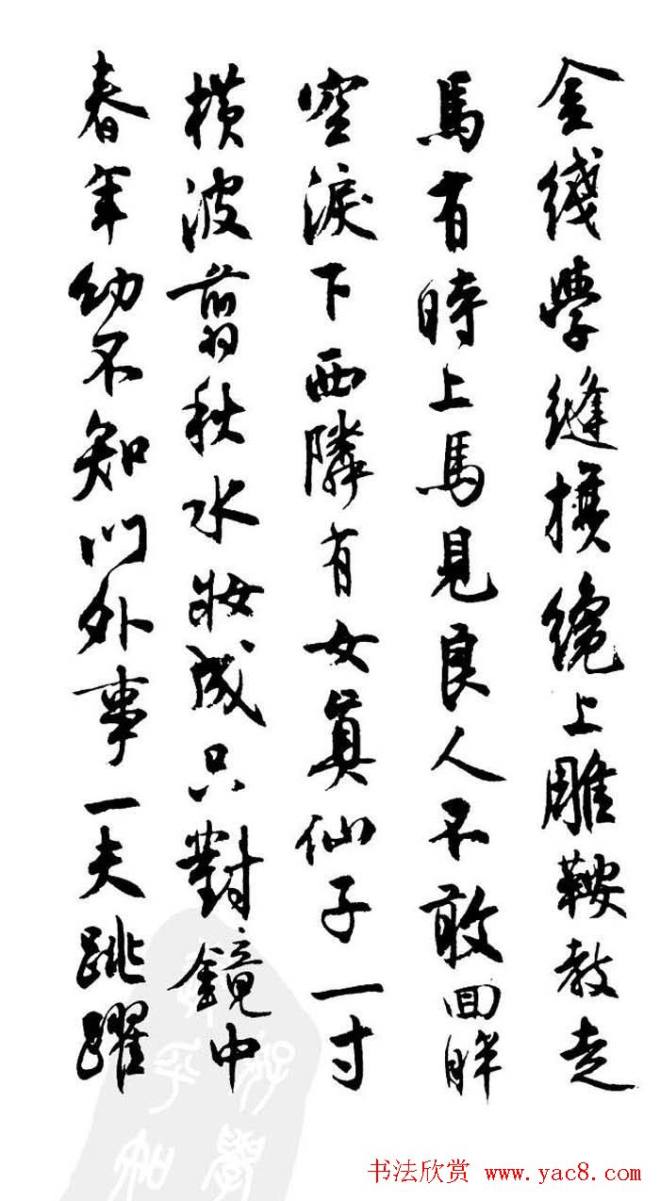 金綫學縫旗纔上雕鞍教走
馬有時上馬見良人不敢回眸
空淚下西隣有女真仙子一寸
橫波翦秋水妝成只對鏡中
春年幼不知门外事一夫跳躍
书法欣赏 www.yac8.com